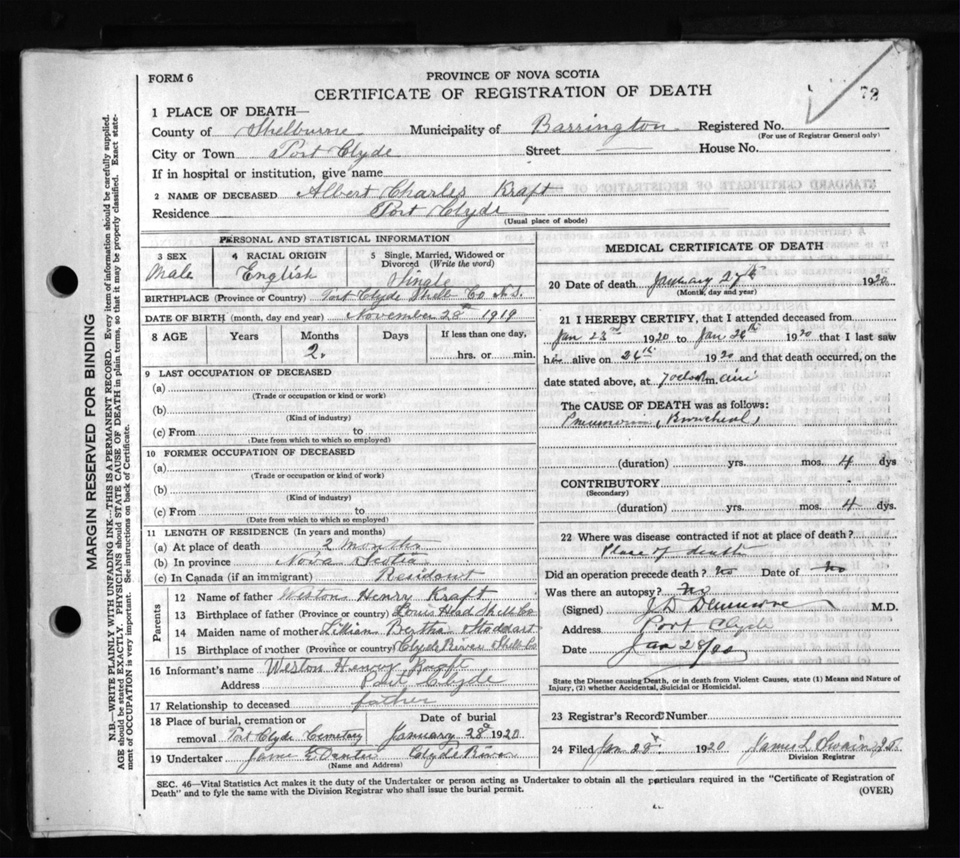 FORM 6
PROVINCE OF NOVA SCOTIA
CERTIFICATE OF REGISTRATION OF DEATH
72
1 PLACE OF DEATH—
County of Shelburne Municipality of Barrington Registered No.
(For use of Registrar General only)
City or Town Port Clyde Street House No.
If in hospital or institution, give name
2 NAME OF DECEASED Albert Charles Kraft
Residence Port Clyde
(Usual place of abode)
PERSONAL AND STATISTICAL INFORMATION
3 SEX
Male
4 RACIAL ORIGIN
English
5 Single, Married, Widowed or
Divorced (Write the word)
Single
BIRTHPLACE (Province or Country) Port Clyde Shelb Co N.S.
DATE OF BIRTH (month, day and year) November 28th 1919
8 AGE Years Months Days If less than one day,
2. hrs. or min.
9 LAST OCCUPATION OF DECEASED
(a)
(Trade or occupation or kind or work)
(b)
(Kind of industry)
(c) From to
(Date from which to which so employed)
10 FORMER OCCUPATION OF DECEASED
(a)
(Trade or occupation or kind of work)
(b)
(Kind of industry)
(c) From to
(Date from which to which so employed)
11 LENGTH OF RESIDENCE (In years and months)
(a) At place of death 2 months
(b) In province Nova Scotia
(c) In Canada (if an immigrant) Resident
Parents
12 Name of father Weston Henry Kraft
13 Birthplace of father (Province or country) Louis Head Shelb Co
14 Maiden name of mother Lillian Bertha Stoddart
15 Birthplace of mother (Province or country) Clyde River Shelb Co
16 Informant's name Weston Henry Kraft
Address Port Clyde
17 Relationship to deceased father
18 Place of burial, cremation or Date of burial
removal Port Clyde Cemetery January 28th 1920
19 Undertaker Clyde River
(Name and Address)
MEDICAL CERTIFICATE OF DEATH
20 Date of death January 27th 1920
(Month, day and year)
21 I HEREBY CERTIFY, that I attended deceased from
Jan 23rd 1920 to Jan 26th 1920 that I last saw
him alive on 26th 1920 and that death occurred, on the
date stated above, at 7 oclock m.
The CAUSE OF DEATH was as follows:
Pneumonia (Bronchial)
(duration) yrs. mos. 4 dys
CONTRIBUTORY
(Secondary)
(duration) yrs. mos. 4 dys.
22 Where was disease contracted if not at place of death?
Place of death
Did an operation precede death? No Date of No
Was there an autopsy? No
(Signed) J D M.D.
Address Port Clyde
Date Jan 28/20
State the Disease causing Death, or in death from Violent Causes, state (1) Means and Nature of
Injury, (2) whether Accidental, Suicidal or Homicidal.
23 Registrar's Record Number
24 Filed Jan 28th 1920 James
Division Registrar
SEC. 46—Vital Statistics Act makes it the duty of the Undertaker or person acting as Undertaker to obtain all the particulars required in the "Certificate of Registration of
Death" and to fyle the same with the Division Registrar who shall issue the burial permit.
(OVER)
MARGIN RESERVED FOR BINDING
N.B.—WRITE PLAINLY WITH UNFADING INK—THIS IS A PERMANENT RECORD. Every item of information should be carefully supplied.
AGE should be stated EXACTLY. PHYSICIANS should STATE CAUSE OF DEATH in plain terms, so that it may be properly classified. Exact state-
ment of OCCUPATION is very important. See instructions on back of Certificate.